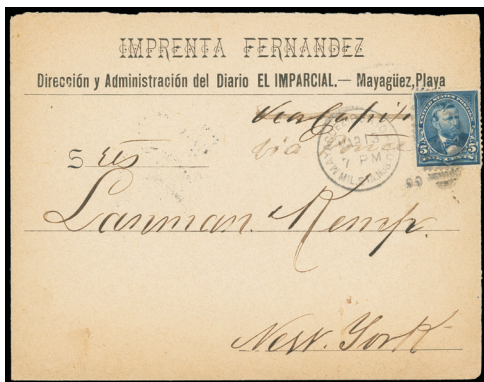 IMPRENTA FERNANDEZ
Dirección y Administración del Diario EL IMPARCIAL.— Mayagüez, Playa
via
via Ponce
5
7 PM
S res
Lanman. Kemp.
New. York